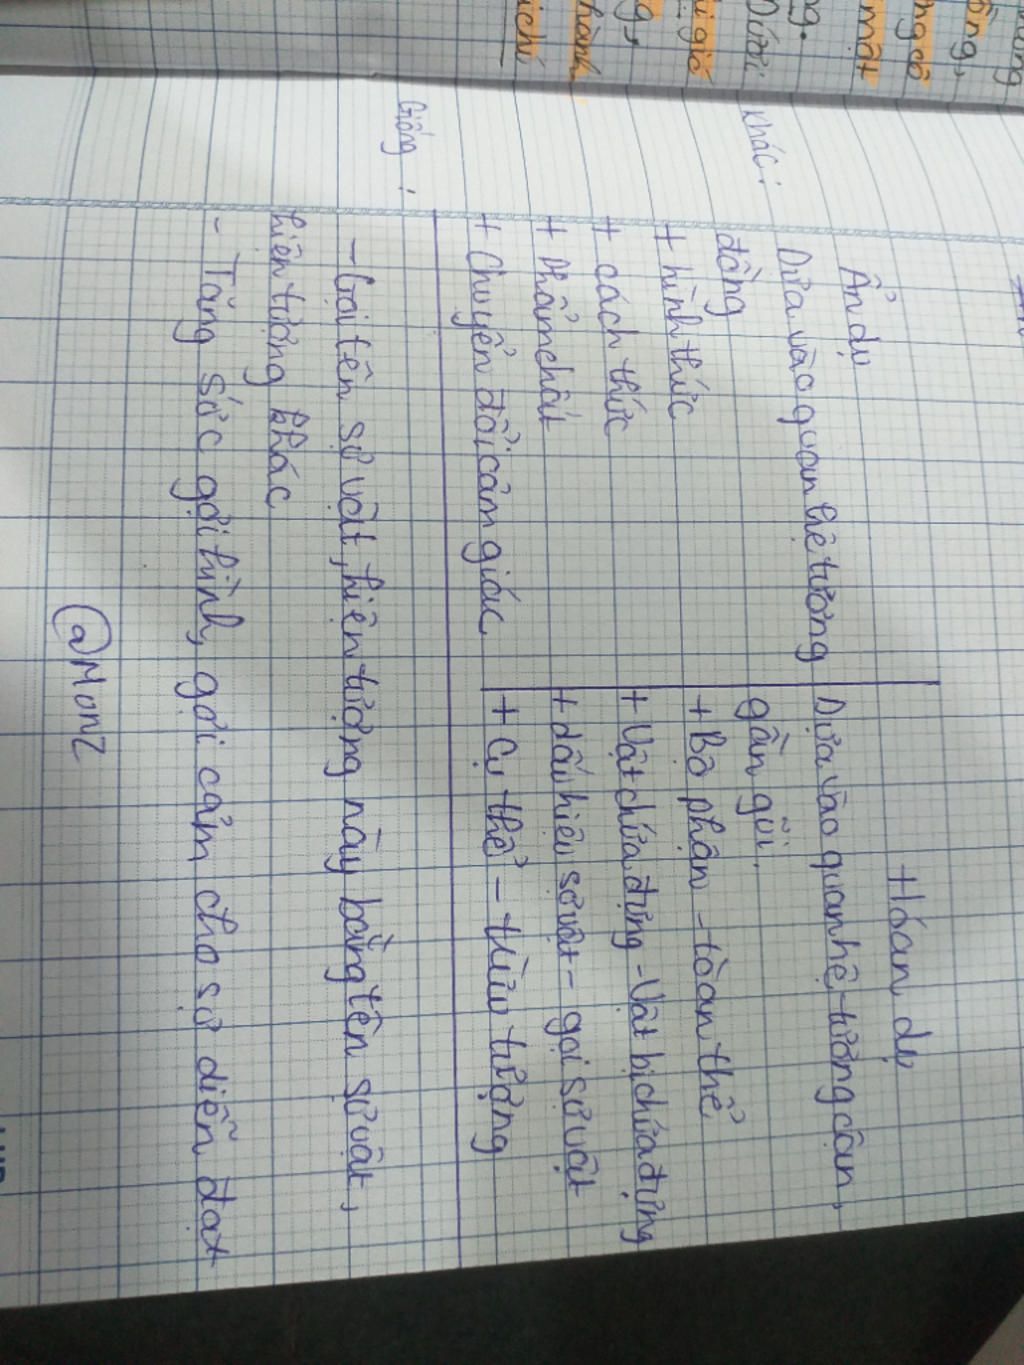 Ẩn dụ
Hóan dụ
Khác:
Dựa vào quan hệ tương
đồng
+ hình thức
+ cách thức
+ Phẩm chất
+ Chuyển đổi cảm giác
Dựa vào quan hệ tương cận,
gần gũi.
+ Bộ phận - tòan thể
+ Vật chứa đựng - Vật bị chứa đựng
+ dấu hiệu sự vật - gọi sự vật
+ Cụ thể - trừu tượng
Giống:
- Gọi tên sự vật, hiện tượng này bằng tên sự vật,
hiện tượng khác
- Tăng sức gợi hình, gợi cảm cho sự diễn đạt
@Monz